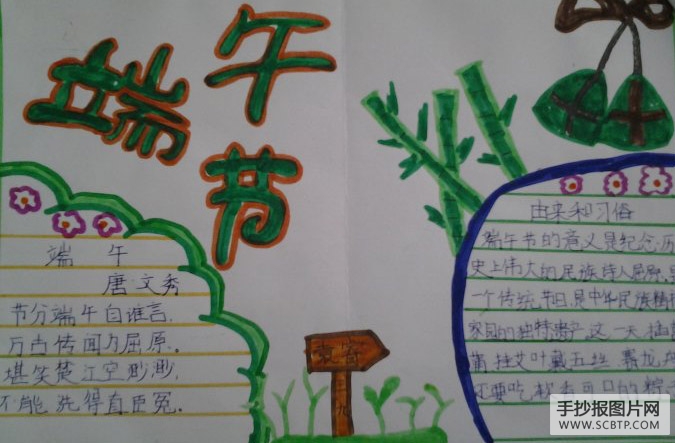 端午节
端 午
唐·文秀
节分端午自谁言,
万古传闻为屈原。
堪笑楚江空渺渺,
不能洗得直臣冤。
由来和习俗
端午节的意义是纪念历
史上伟大的民族诗人屈原,是
一个传统节日,是中华民族精神
家园的独特遗产。这一天,
蒲,挂艾叶戴五丝,赛龙
还要吃松香可口的粽
手抄报图片网
WWW.SCBTP.COM